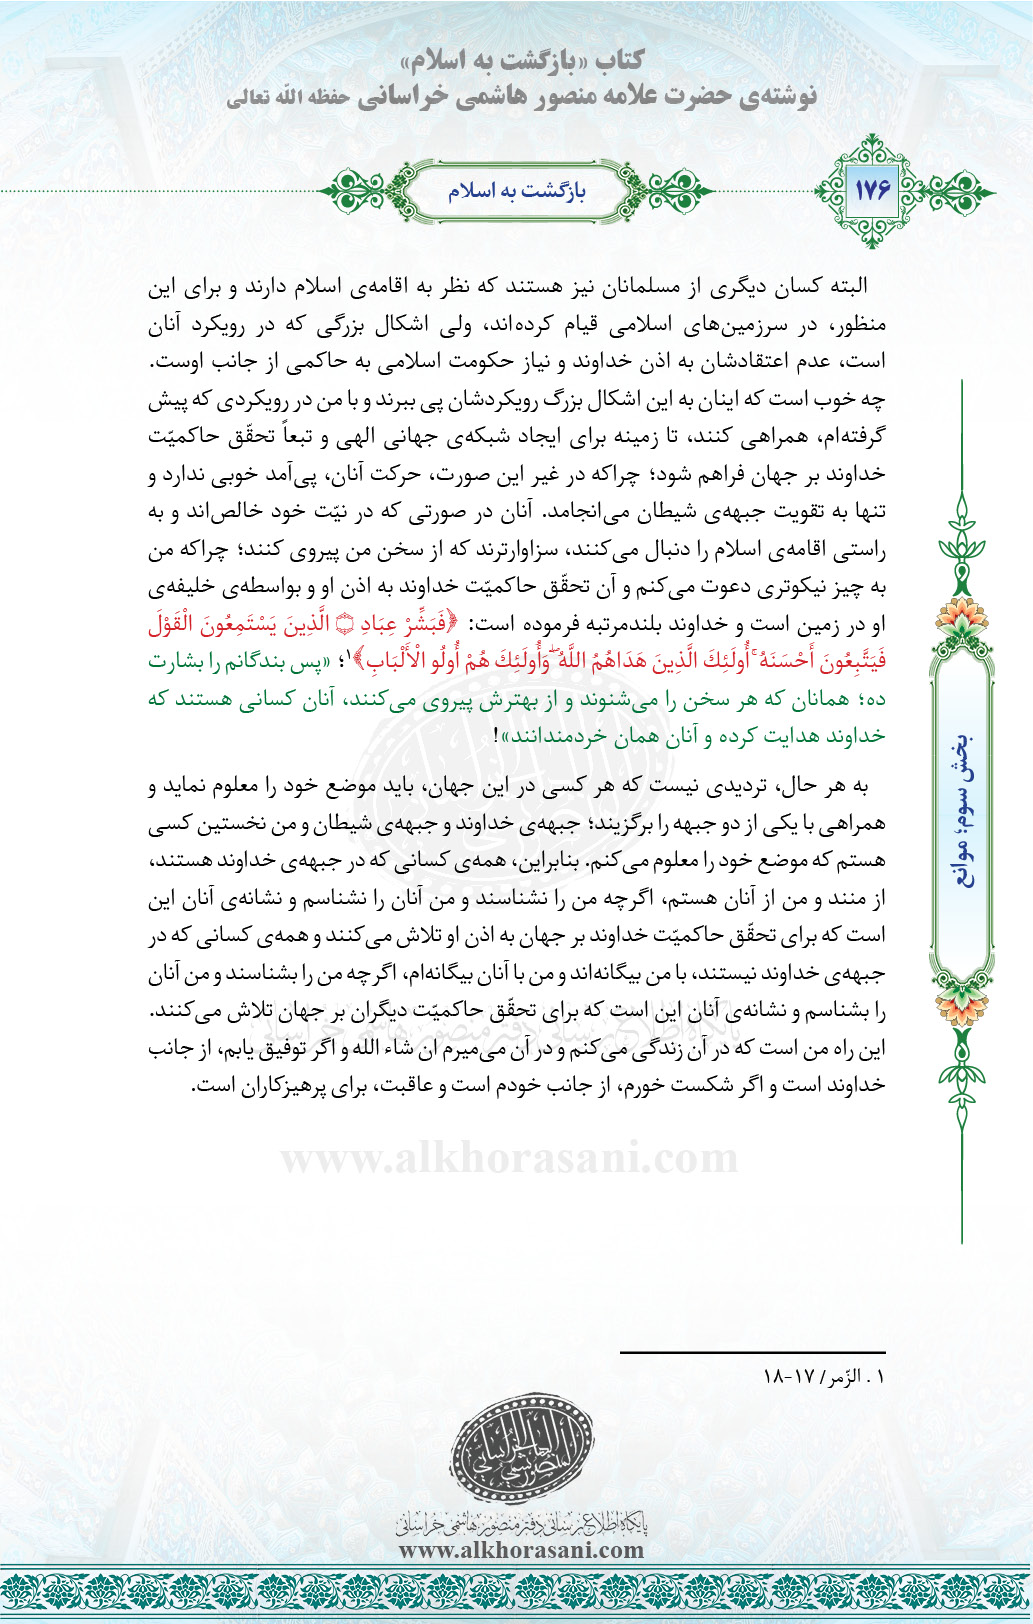 کتاب «بازگشت به اسلام»
نوشته‌ی حضرت علامه منصور هاشمی خراسانی حفظه الله تعالی
۱۷۶
بازگشت به اسلام
البته کسان دیگری از مسلمانان نیز هستند که نظر به اقامه‌ی اسلام دارند و برای این
منظور، در سرزمین‌های اسلامی قیام کرده‌اند، ولی اشکال بزرگی که در رویکرد آنان
است، عدم اعتقادشان به اذن خداوند و نیاز حکومت اسلامی به حاکمی از جانب اوست.
چه خوب است که اینان به این اشکال بزرگ رویکردشان پی ببرند و با من در رویکردی که پیش
گرفته‌ام، همراهی کنند، تا زمینه برای ایجاد شبکه‌ی جهانی الهی و تبعاً تحقّق حاکمیّت
خداوند بر جهان فراهم شود؛ چراکه در غیر این صورت، حرکت آنان، پی‌آمد خوبی ندارد و
تنها به تقویت جبهه‌ی شیطان می‌انجامد. آنان در صورتی که در نیّت خود خالص‌اند و به
راستی اقامه‌ی اسلام را دنبال می‌کنند، سزاوارترند که از سخن من پیروی کنند؛ چراکه من
به چیز نیکوتری دعوت می‌کنم و آن تحقّق حاکمیّت خداوند به اذن او و بواسطه‌ی خلیفه‌ی
او در زمین است و خداوند بلندمرتبه فرموده است: ﴿فَبَشِّرْ عِبَادِ ۝ الَّذِينَ يَسْتَمِعُونَ الْقَوْلَ
فَيَتَّبِعُونَ أَحْسَنَهُ ۚ أُولَئِكَ الَّذِينَ هَدَاهُمُ اللَّهُ ۖ وَأُولَئِكَ هُمْ أُولُو الْأَلْبَابِ﴾۱؛ «پس بندگانم را بشارت
ده؛ همانان که هر سخن را می‌شنوند و از بهترش پیروی می‌کنند، آنان کسانی هستند که
خداوند هدایت کرده و آنان همان خردمندانند»!
به هر حال، تردیدی نیست که هر کسی در این جهان، باید موضع خود را معلوم نماید و
همراهی با یکی از دو جبهه را برگزیند؛ جبهه‌ی خداوند و جبهه‌ی شیطان و من نخستین کسی
هستم که موضع خود را معلوم می‌کنم. بنابراین، همه‌ی کسانی که در جبهه‌ی خداوند هستند،
از منند و من از آنان هستم، اگرچه من را نشناسند و من آنان را نشناسم و نشانه‌ی آنان این
است که برای تحقّق حاکمیّت خداوند بر جهان به اذن او تلاش می‌کنند و همه‌ی کسانی که در
جبهه‌ی خداوند نیستند، با من بیگانه‌اند و من با آنان بیگانه‌ام، اگرچه من را بشناسند و من آنان
را بشناسم و نشانه‌ی آنان این است که برای تحقّق حاکمیّت دیگران بر جهان تلاش می‌کنند.
این راه من است که در آن زندگی می‌کنم و در آن می‌میرم ان شاء الله و اگر توفیق یابم، از جانب
خداوند است و اگر شکست خورم، از جانب خودم است و عاقبت، برای پرهیزکاران است.
بخش سوم؛ موانع
پایگاه اطلاع‌رسانی دفتر منصور هاشمی خراسانی
www.alkhorasani.com
۱ . الزّمر/ ۱۷-۱۸
المنصور الهاشمی الخراسانی
پایگاه اطلاع‌رسانی دفتر منصور هاشمی خراسانی
www.alkhorasani.com